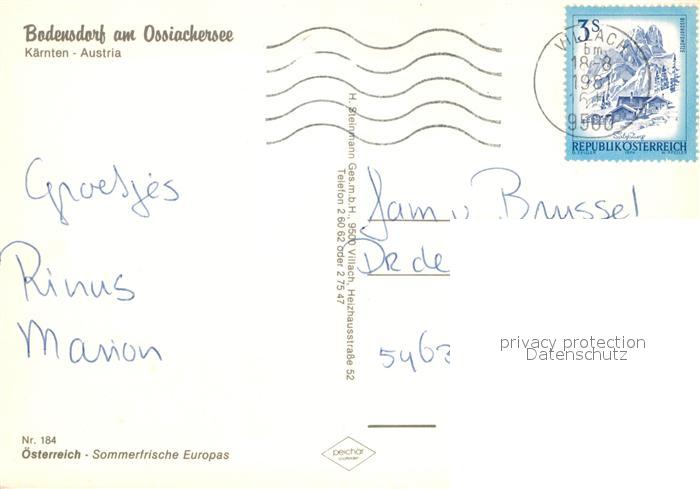 Bodensdorf am Ossiachersee
Kärnten - Austria
Groetjes
Rinus
Marion
Nr. 184
Österreich - Sommerfrische Europas
H. Steinmann Ges.m.b.H., 9500 Villach, Heizhausstraße 52
Telefon 2 60 62 oder 2 75 47
peichär
VILLACH
18-8
1981
9500
3 S
REPUBLIK ÖSTERREICH
Fam v Brussel
Dr de
5463
privacy protection
Datenschutz